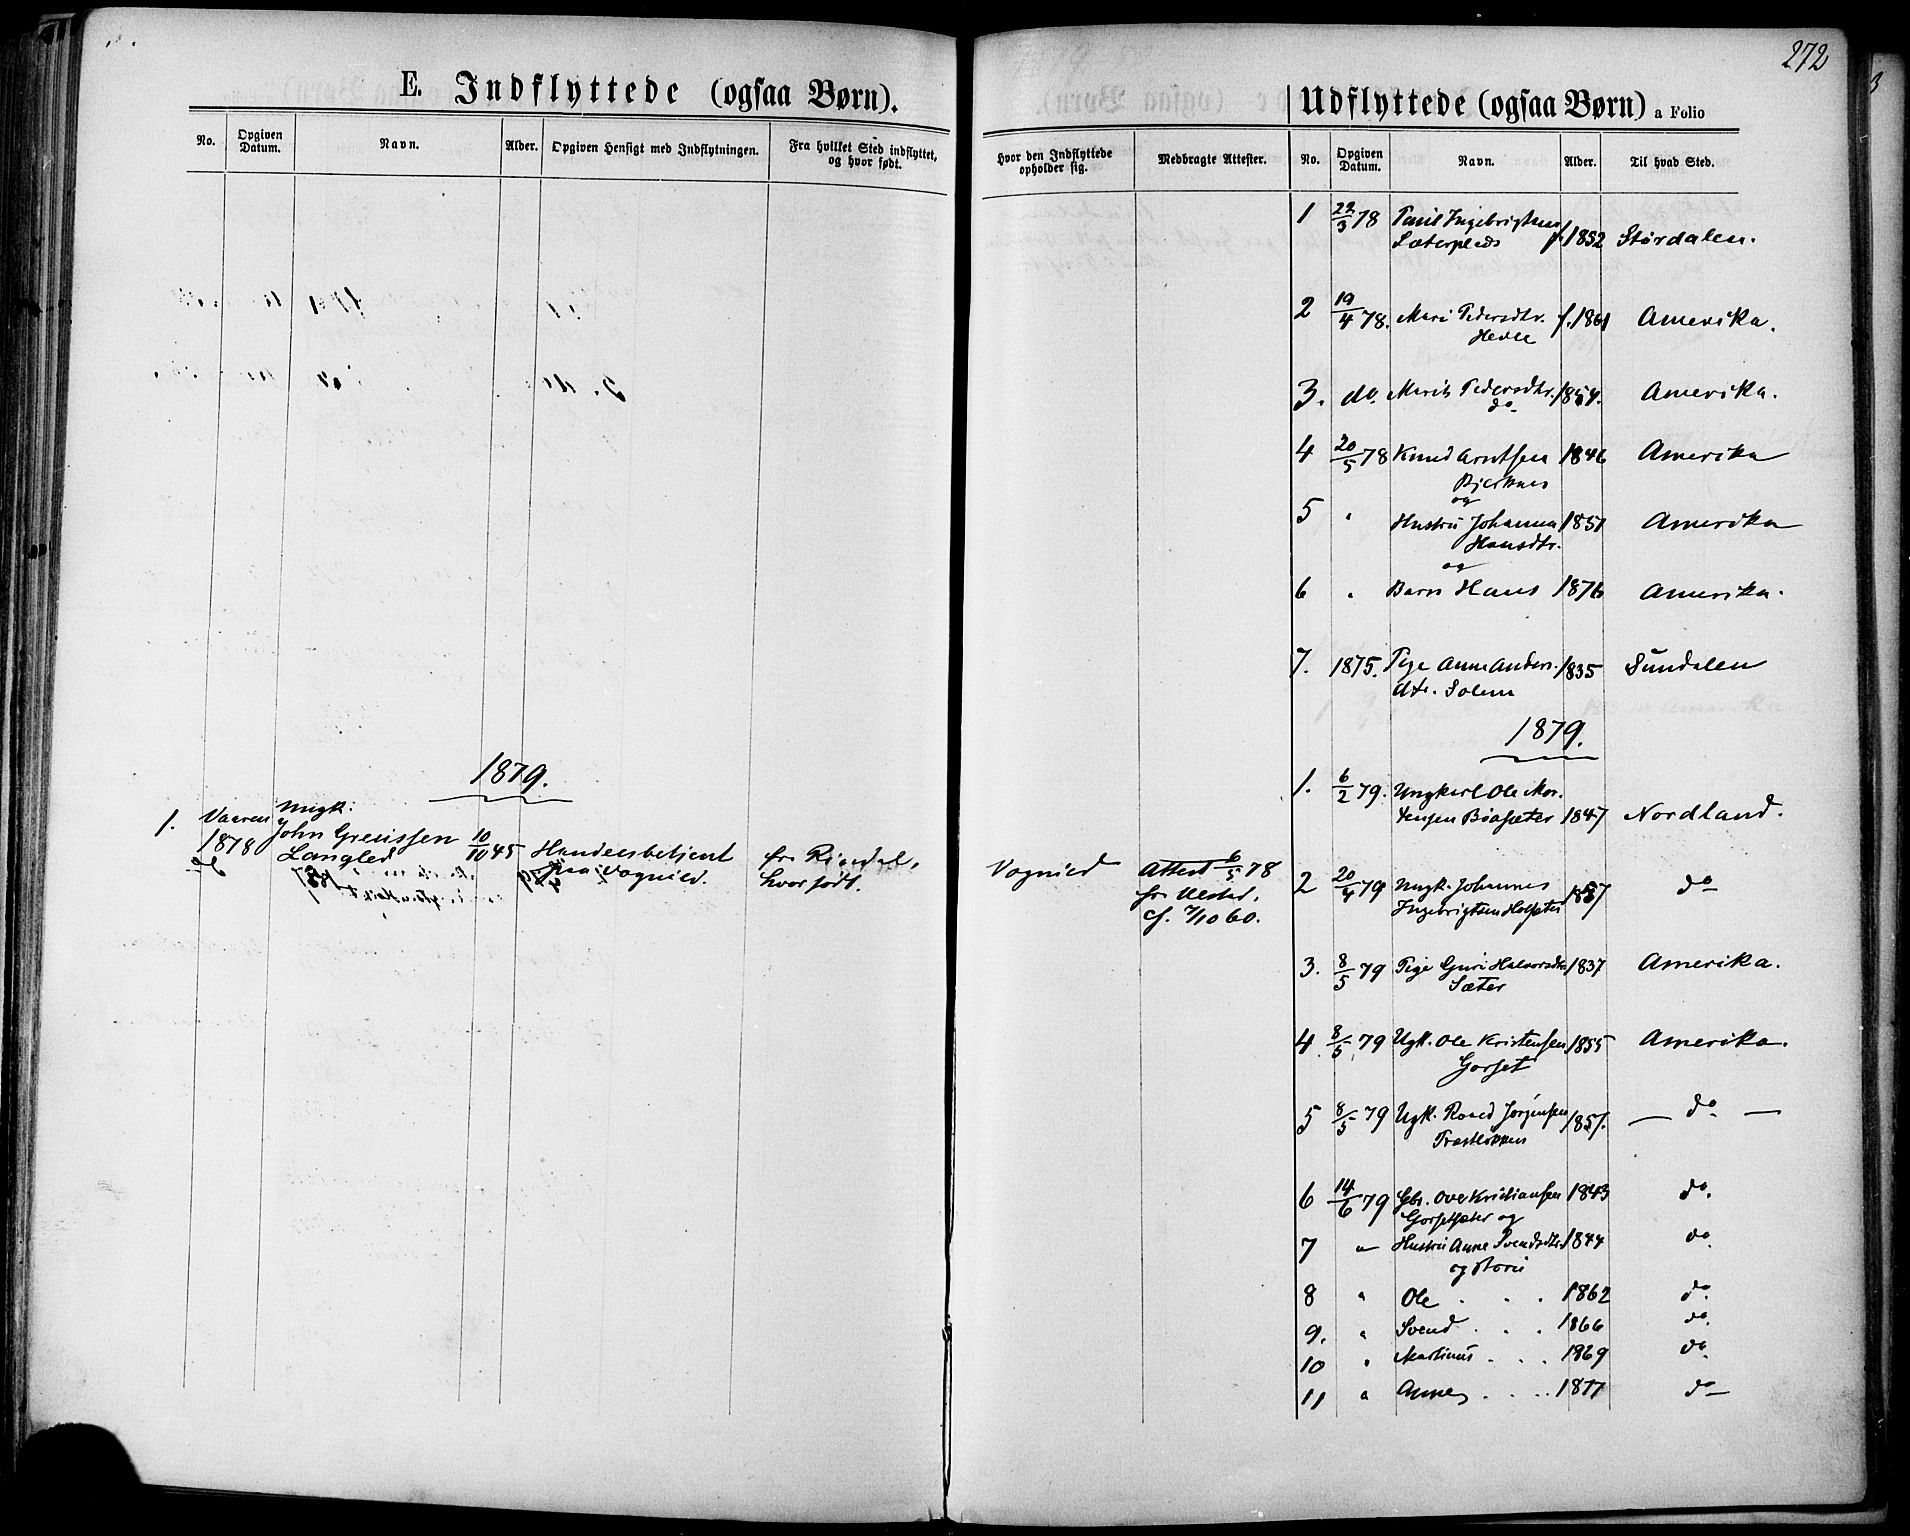 272
E. Indflyttede (ogsaa Børn).
No. Opgiven Datum. Navn. Alder. Opgiven Hensigt med Indflytningen. Fra hvilket Sted indflyttet, og hvor født.
1879.
1. Vaaren Ungk.
1878 John Langled 10/10 45 Handelsbetjent fr. Rindal,
paa Vognild. hvor født.
Udflyttede (ogsaa Børn) a Folio
Hvor den Indflyttede opholder sig. Medbragte Attester. No. Opgiven Datum. Navn. Alder. Til hvad Sted.
1 22/3 78 Ingebrigtsen
f. 1852 Størdalen.
2 19/4 78. Mari Pedersdtr. f. 1861 Amerika.
Hevle
3. do. Marit Pedersdtr. 1854. Amerika.
do
4 20/5 78 Knud Arntsen 1846 Amerika
Bjerknes
og
5 " Hustru Johanna 1851 Amerika
Hansdtr.
og
6 " Barn Hans 1876 Amerika.
7. 1875. Pige Anne Anders. 1835 Sundalen
dtr. Solem
1879.
1. 6/2 79. Ungkarl Ole Mor.
tensen Bøasæter 1847 Nordland.
Vognild Attest 6/5 78
fr.
cf. 7/10 60.
2 20/4 79 Ungk. Johannes 1857 do
Ingebrigtsen
3. 8/5 79 Pige Guri Halvorsdtr 1837 Amerika.
Sæter
4. 8/5 79 Ugk. Ole Kristensen 1855 Amerika.
Gorset
5 8/5 79 Ugk. Jørgensen 1857. — do —
6 14/6 79 Gbr. Ove Kristiansen 1843 do.
Gorsetsæter og
7 " Hustru Anne Svendsdtr 1844 do
og Børn
8 " Ole . . . 1862 do.
9. " Svend . . . 1866 do.
10 " Martinus . . . 1869 do.
11 " Anne . . . 1877 do